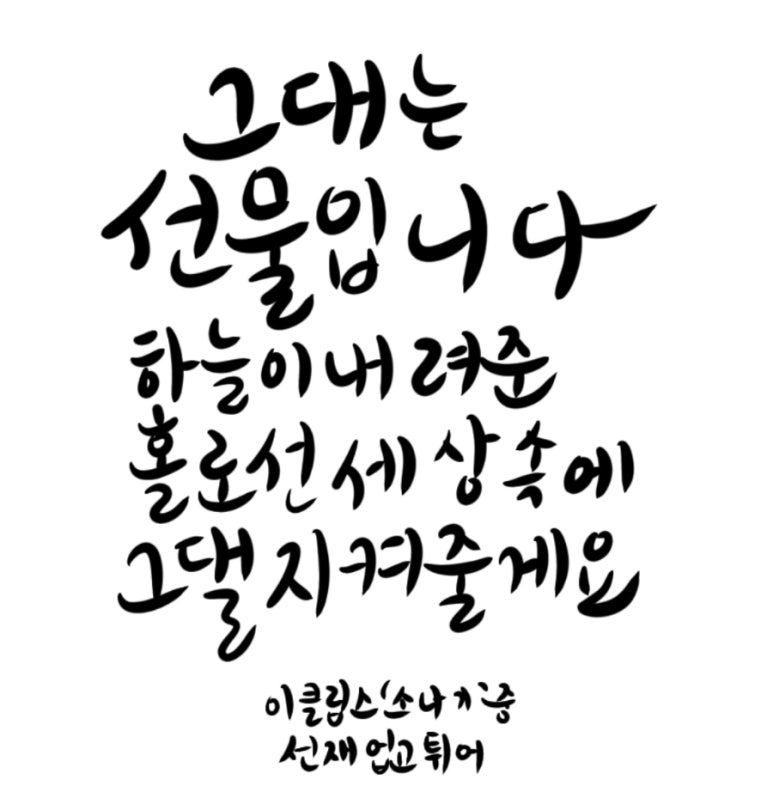 그대는
선물입니다
하늘이 내려준
홀로선 세상 속에
그댈 지켜줄게요
이클립스 '소나기' 중
선재 업고 튀어